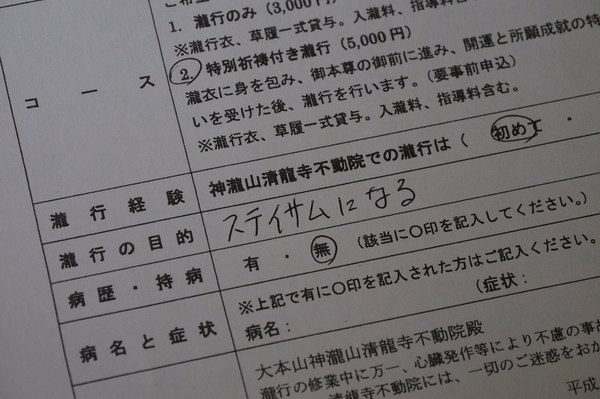 1. 瀧行のみ (3,000円)
※瀧行衣、草履一式貸与。入瀧料、指導料含
コース
2. 特別祈祷付き瀧行 (5,000円)
瀧衣に身を包み、御本尊の御前に進み、開運と所願成就の特
いを受けた後、瀧行を行います。(要事前申込)
※瀧行衣、草履一式貸与。入瀧料、指導料含む。
瀧行経験 神瀧山清龍寺不動院での瀧行は ( 初めて ・
瀧行の目的 ステイサムになる
病歴・持病 有 ・ 無 (該当に〇印を記入してください。)
※上記で有に〇印を記入された方はご記入ください。
病名と症状 病名: (症状:
大本山神瀧山清龍寺不動院殿
瀧行の修業中に万一、心臓発作等により不慮の事故
清龍寺不動院には、一切のご迷惑をおか
平成